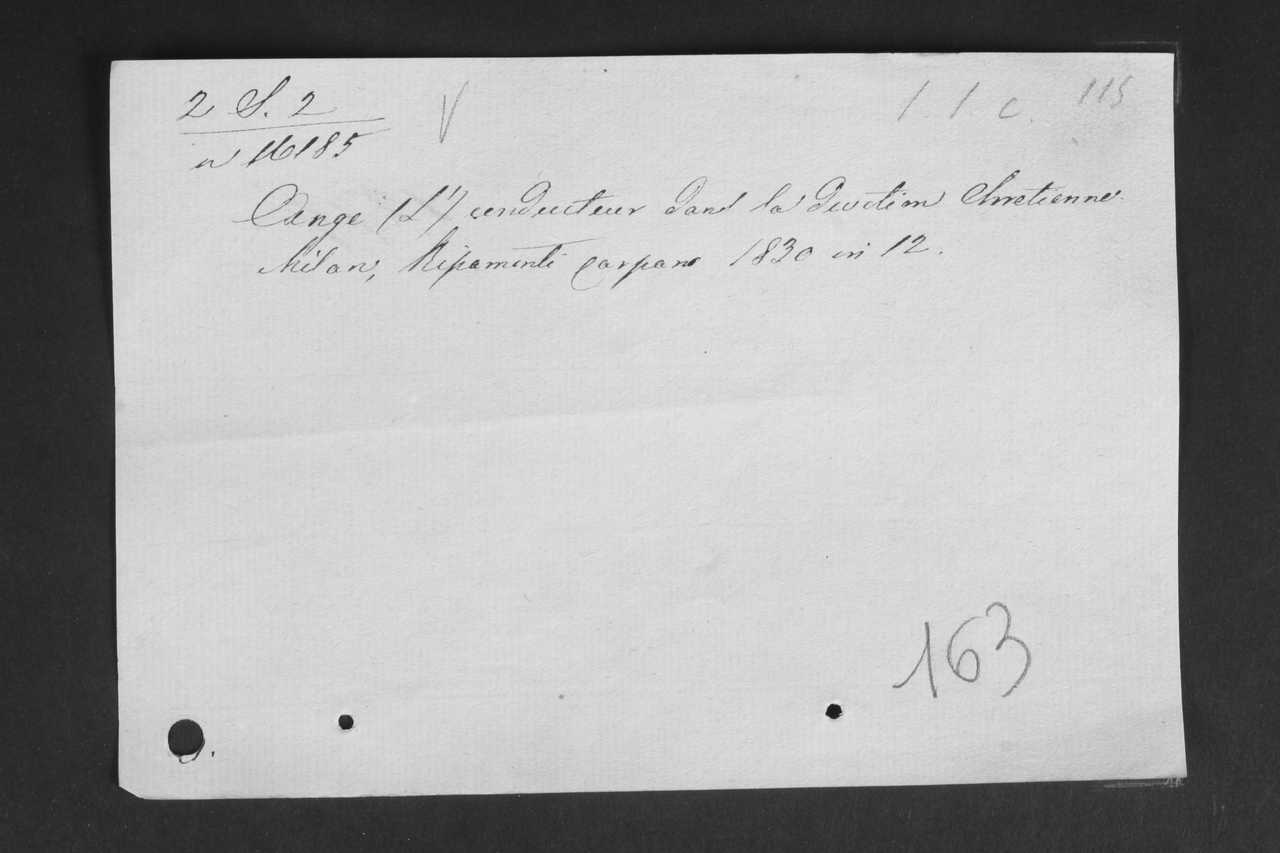 2 S. 2 V 1. 1. c. 115
n 16185
Ange (L') conducteur dans la devotion Chretienne.
Milan, Ripamonti Carpano 1830 in 12.
163